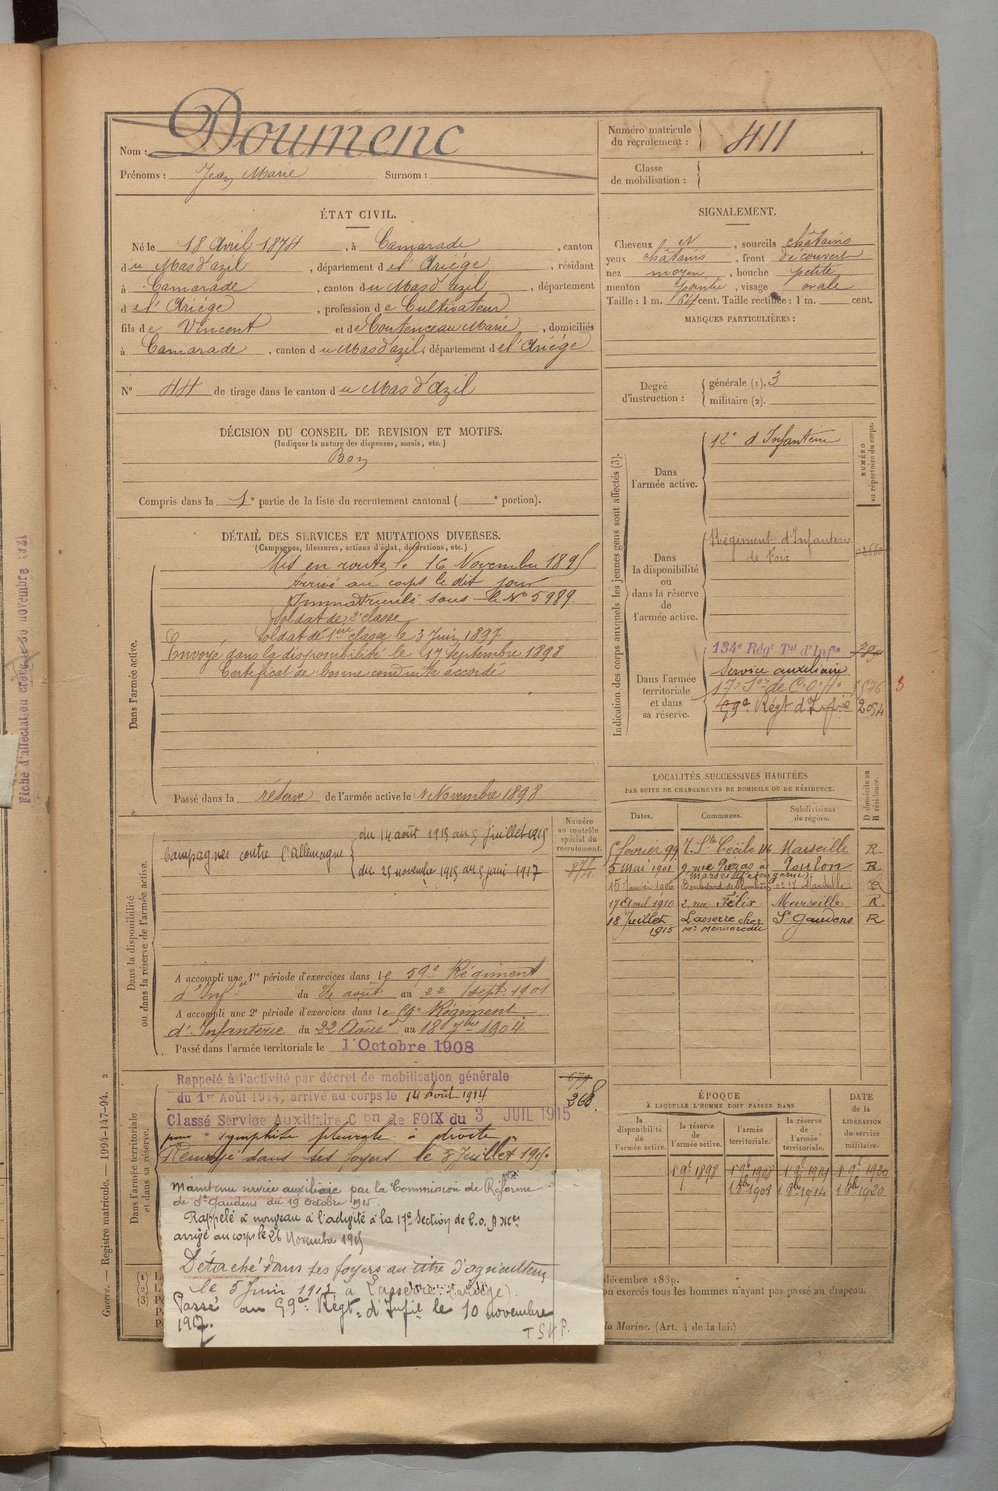 Nom : Doumenc
Prénoms : Jean Marie Surnom :
Numéro matricule du recrutement : 411
Classe de mobilisation :
ÉTAT CIVIL.
Né le 18 Avril 1874, à Camarade, canton
du Mas d'azil, département de l'Ariège, résidant
à Camarade, canton du Mas d'azil, département
de l'Ariège, profession de Cultivateur
fils de Vincent et de Coutenceau Marie, domiciliés
à Camarade, canton du Mas d'azil, département de l'Ariège
N° 44 de tirage dans le canton du Mas d'azil
SIGNALEMENT.
Cheveux N, sourcils châtains
yeux châtains, front découvert
nez moyen, bouche petite
menton pointu, visage ovale
Taille : 1 m. 64 cent. Taille rectifiée : 1 m. cent.
MARQUES PARTICULIÈRES :
Degré d'instruction : générale (1). 3
militaire (2).
DÉCISION DU CONSEIL DE REVISION ET MOTIFS.
(Indiquer la nature des dispenses, sursis, etc.)
Bon
Compris dans la 1e partie de la liste du recrutement cantonal ( e portion).
DÉTAIL DES SERVICES ET MUTATIONS DIVERSES.
(Campagnes, blessures, actions d'éclat, décorations, etc.)
Dans l'armée active.
Mis en route le 16 Novembre 1895
Arrivé au corps le dit jour
Immatriculé sous le N° 5989
Soldat de 2e classe
Soldat de 1ère classe le 3 Juin 1897
Envoyé dans la disponibilité le 17 Septembre 1898
Certificat de bonne conduite accordé
Passé dans la réserve de l'armée active le 1 Novembre 1898
Indication des corps auxquels les jeunes gens sont affectés (3).
NUMÉRO au répertoire du corps.
Dans l'armée active.
12e d'Infanterie
Dans la disponibilité ou dans la réserve de l'armée active.
Régiment d'Infanterie
de Foix
Dans l'armée territoriale et dans sa réserve.
134e Régt Tal d'Infie
Service auxiliaire
17e Son de C.O.A.
1576 3
59e Régt d'Infie 2054
Dans la disponibilité ou dans la réserve de l'armée active.
Numéro au contrôle spécial du recrutement.
Campagnes contre l'allemagne
du 14 août 1915 au 9 juillet 1915
du 25 novembre 1915 au 5 juin 1917
A accompli une 1re période d'exercices dans le 59e Régiment
d'Infie du 26 août au 22 Sept 1901
A accompli une 2e période d'exercices dans le 59e Régiment
d'Infanterie du 22 Août au 18 7bre 1904
Passé dans l'armée territoriale le 1 Octobre 1908
LOCALITÉS SUCCESSIVES HABITÉES
PAR SUITE DE CHANGEMENTS DE DOMICILE OU DE RÉSIDENCE.
Dates. Communes. Subdivisions de région. D domicile ou R résidence.
5 février 99 r. Ste Cécile 116 Marseille R
5 mai 1901 Toulon R
17 Avril 1910 2, rue Félix Marseille R
18 Juillet 1915 Lasserre chez St Gaudens R
Dans l'armée territoriale et dans sa réserve.
Rappelé à l'activité par décret de mobilisation générale
du 1er Août 1914, arrivé au corps le 14 Août 1914
268
Classé Service Auxiliaire Con de FOIX du 3 JUIL 1915
pour symphise pleurale à droite
Renvoyé dans ses foyers le 8 Juillet 1915.
Maintenu service auxiliaire par la Commission de Réforme
de St Gaudens du 19 octobre 1915
Rappelé à nouveau à l'activité à la 17e Section de C.O.A.
arrivé au corps le 26 Novembre 1915
Détaché dans ses foyers au titre d'agriculteur
le 5 Juin 1917 à Lasserre (Ariège)
Passé au 59e Régt d'Infie le 10 novembre
1917.
T.S.V.P.
ÉPOQUE
À LAQUELLE L'HOMME DOIT PASSER DANS
la disponibilité de l'armée active. la réserve de l'armée active. l'armée territoriale. la réserve de l'armée territoriale. DATE de la LIBÉRATION du service militaire.
décembre 1889.
on exercés tous les hommes n'ayant pas passé au drapeau.
la Marine. (Art. 4 de la loi.)
Guerre. — Registre matricule. — 1994-147-94. 2
Fiche d'affectation créée le 30 novembre 1921